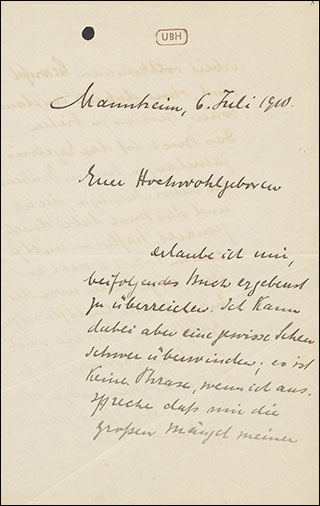 UBH
Mannheim, 6. Juli 1910.
Euer Hochwohlgeboren
erlaube ich mir,
beifolgendes Buch ergebenst
zu überreichen. Ich kann
dabei aber eine gewisse Scheu
schwer überwinden; es ist
keine Phrase, wenn ich aus-
spreche daß mir die
großen Mängel meiner